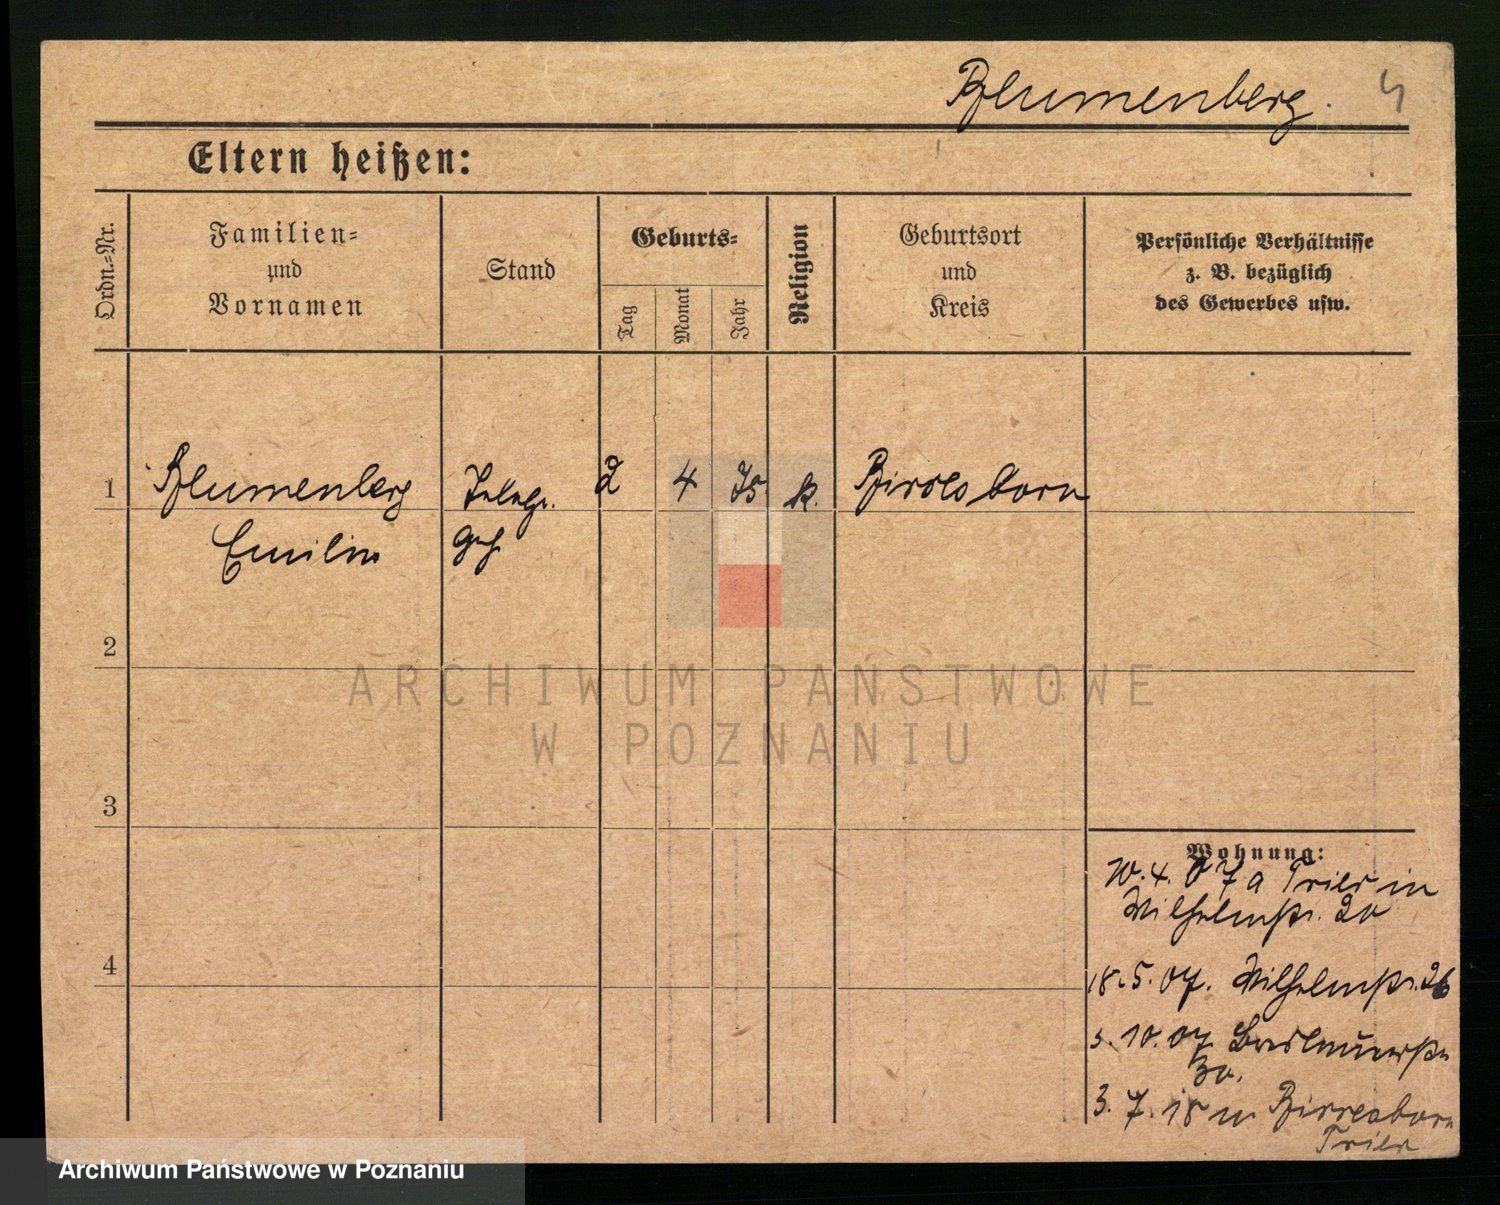 Blumenberg. 4
Eltern heißen:
Ordn.=Nr.
Familien=
und
Vornamen
Stand
Geburts=
Tag
Monat
Jahr
Religion
Geburtsort
und
Kreis
Persönliche Verhältnisse
z. B. bezüglich
des Gewerbes usw.
1 Blumenberg Telegr. 2 4 75 k. Birresborn
Emilie Geh
2
3
4
Wohnung:
10. 4. 07 a Trier in
Wilhelmstr. 20
18. 5. 07. Wilhelmstr. 26
3. 10. 07
30.
3. 7. 18 n Birresborn
Trier
ARCHIWUM PAŃSTWOWE
W POZNANIU
Archiwum Państwowe w Poznaniu